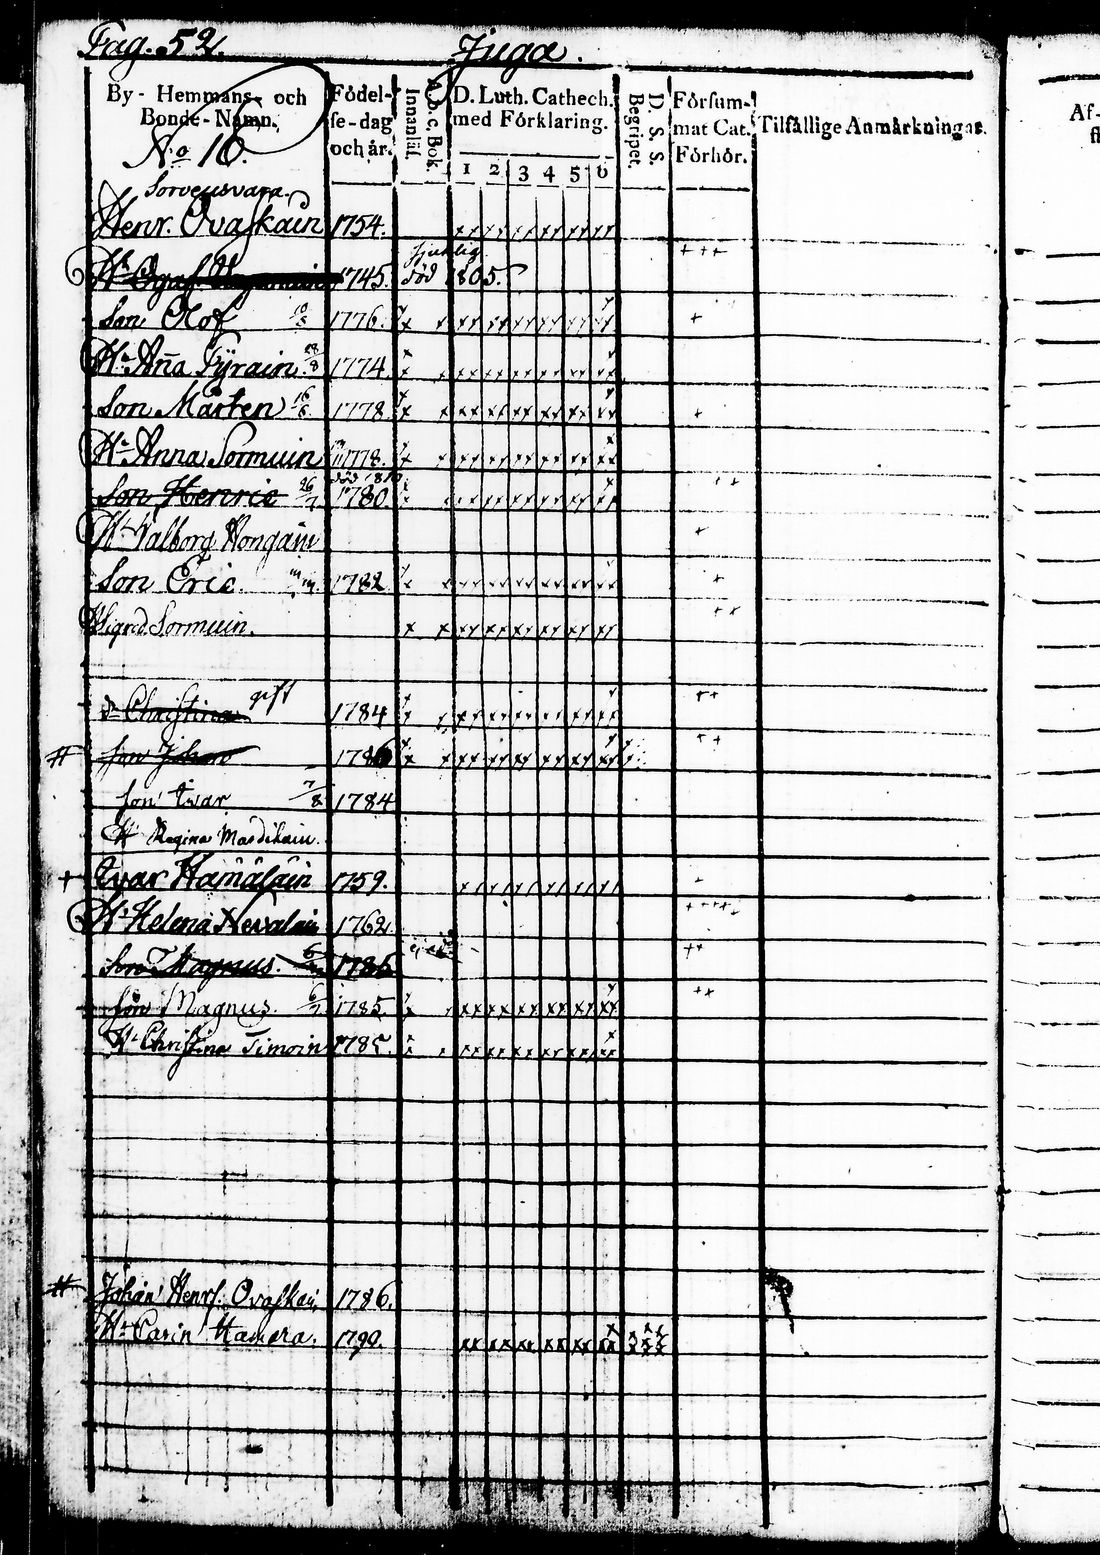 Pag. 52. Juga.
By- Hemmans- och Bonde-Namn. Födel-se-dag och år. Innanläs. A.b.c. Bok. D. Luth. Cathech. med Förklaring. D. S. S. Begripet. Försum-mat Cat. Förhör. Tilfällige Anmärkningar.
1 2 3 4 5 6
No 16.
Sorvensvara.
Henr. Ovaskain 1754.
H. 1745. död 1805.
Son Olof 10/8 1776.
H. Anna Pyrain 28/8 1774
Son Mårten 16/6 1778
H. Anna Sormuin 1778.
död 1810
Son Henric 26/7 1780.
H. Valborg Hongain
Son Eric. 1782
H Sigrid Sormuin.
d. Christina gift 1784
# Son Johan 1786
Son Ivar 7/8 1784
H Regina Masdikain.
+ Ivar Hämäläin 1759.
H. Helena Nevalain 1762
Son Magnus. 1785
Son Magnus. 6/7 1785.
H. Christina Timoin 1785.
# Johan Henrs. Ovaskai. 1786.
H. Carin Hamara. 1790.
Af-